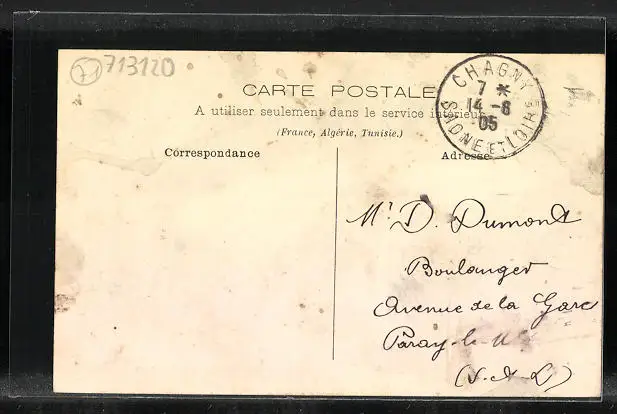 71 713120
CARTE POSTALE
A utiliser seulement dans le service intérieur
(France, Algérie, Tunisie.)
Correspondance
Adresse
CHAGNY
7 *
14 -8
05
SAONE ET LOIRE
Mr D. Dumont
Boulanger
Avenue de la Gare
Paray-le-M
(S. & L)